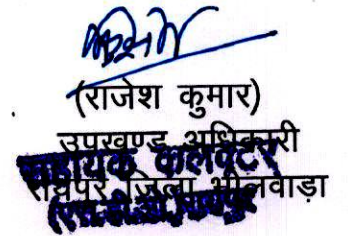 (राजेश कुमार)
उपखण्ड अधिकारी
सहायक कलेक्टर
रायपुर जिला भीलवाड़ा
(एस.डी.ओ.) रायपुर